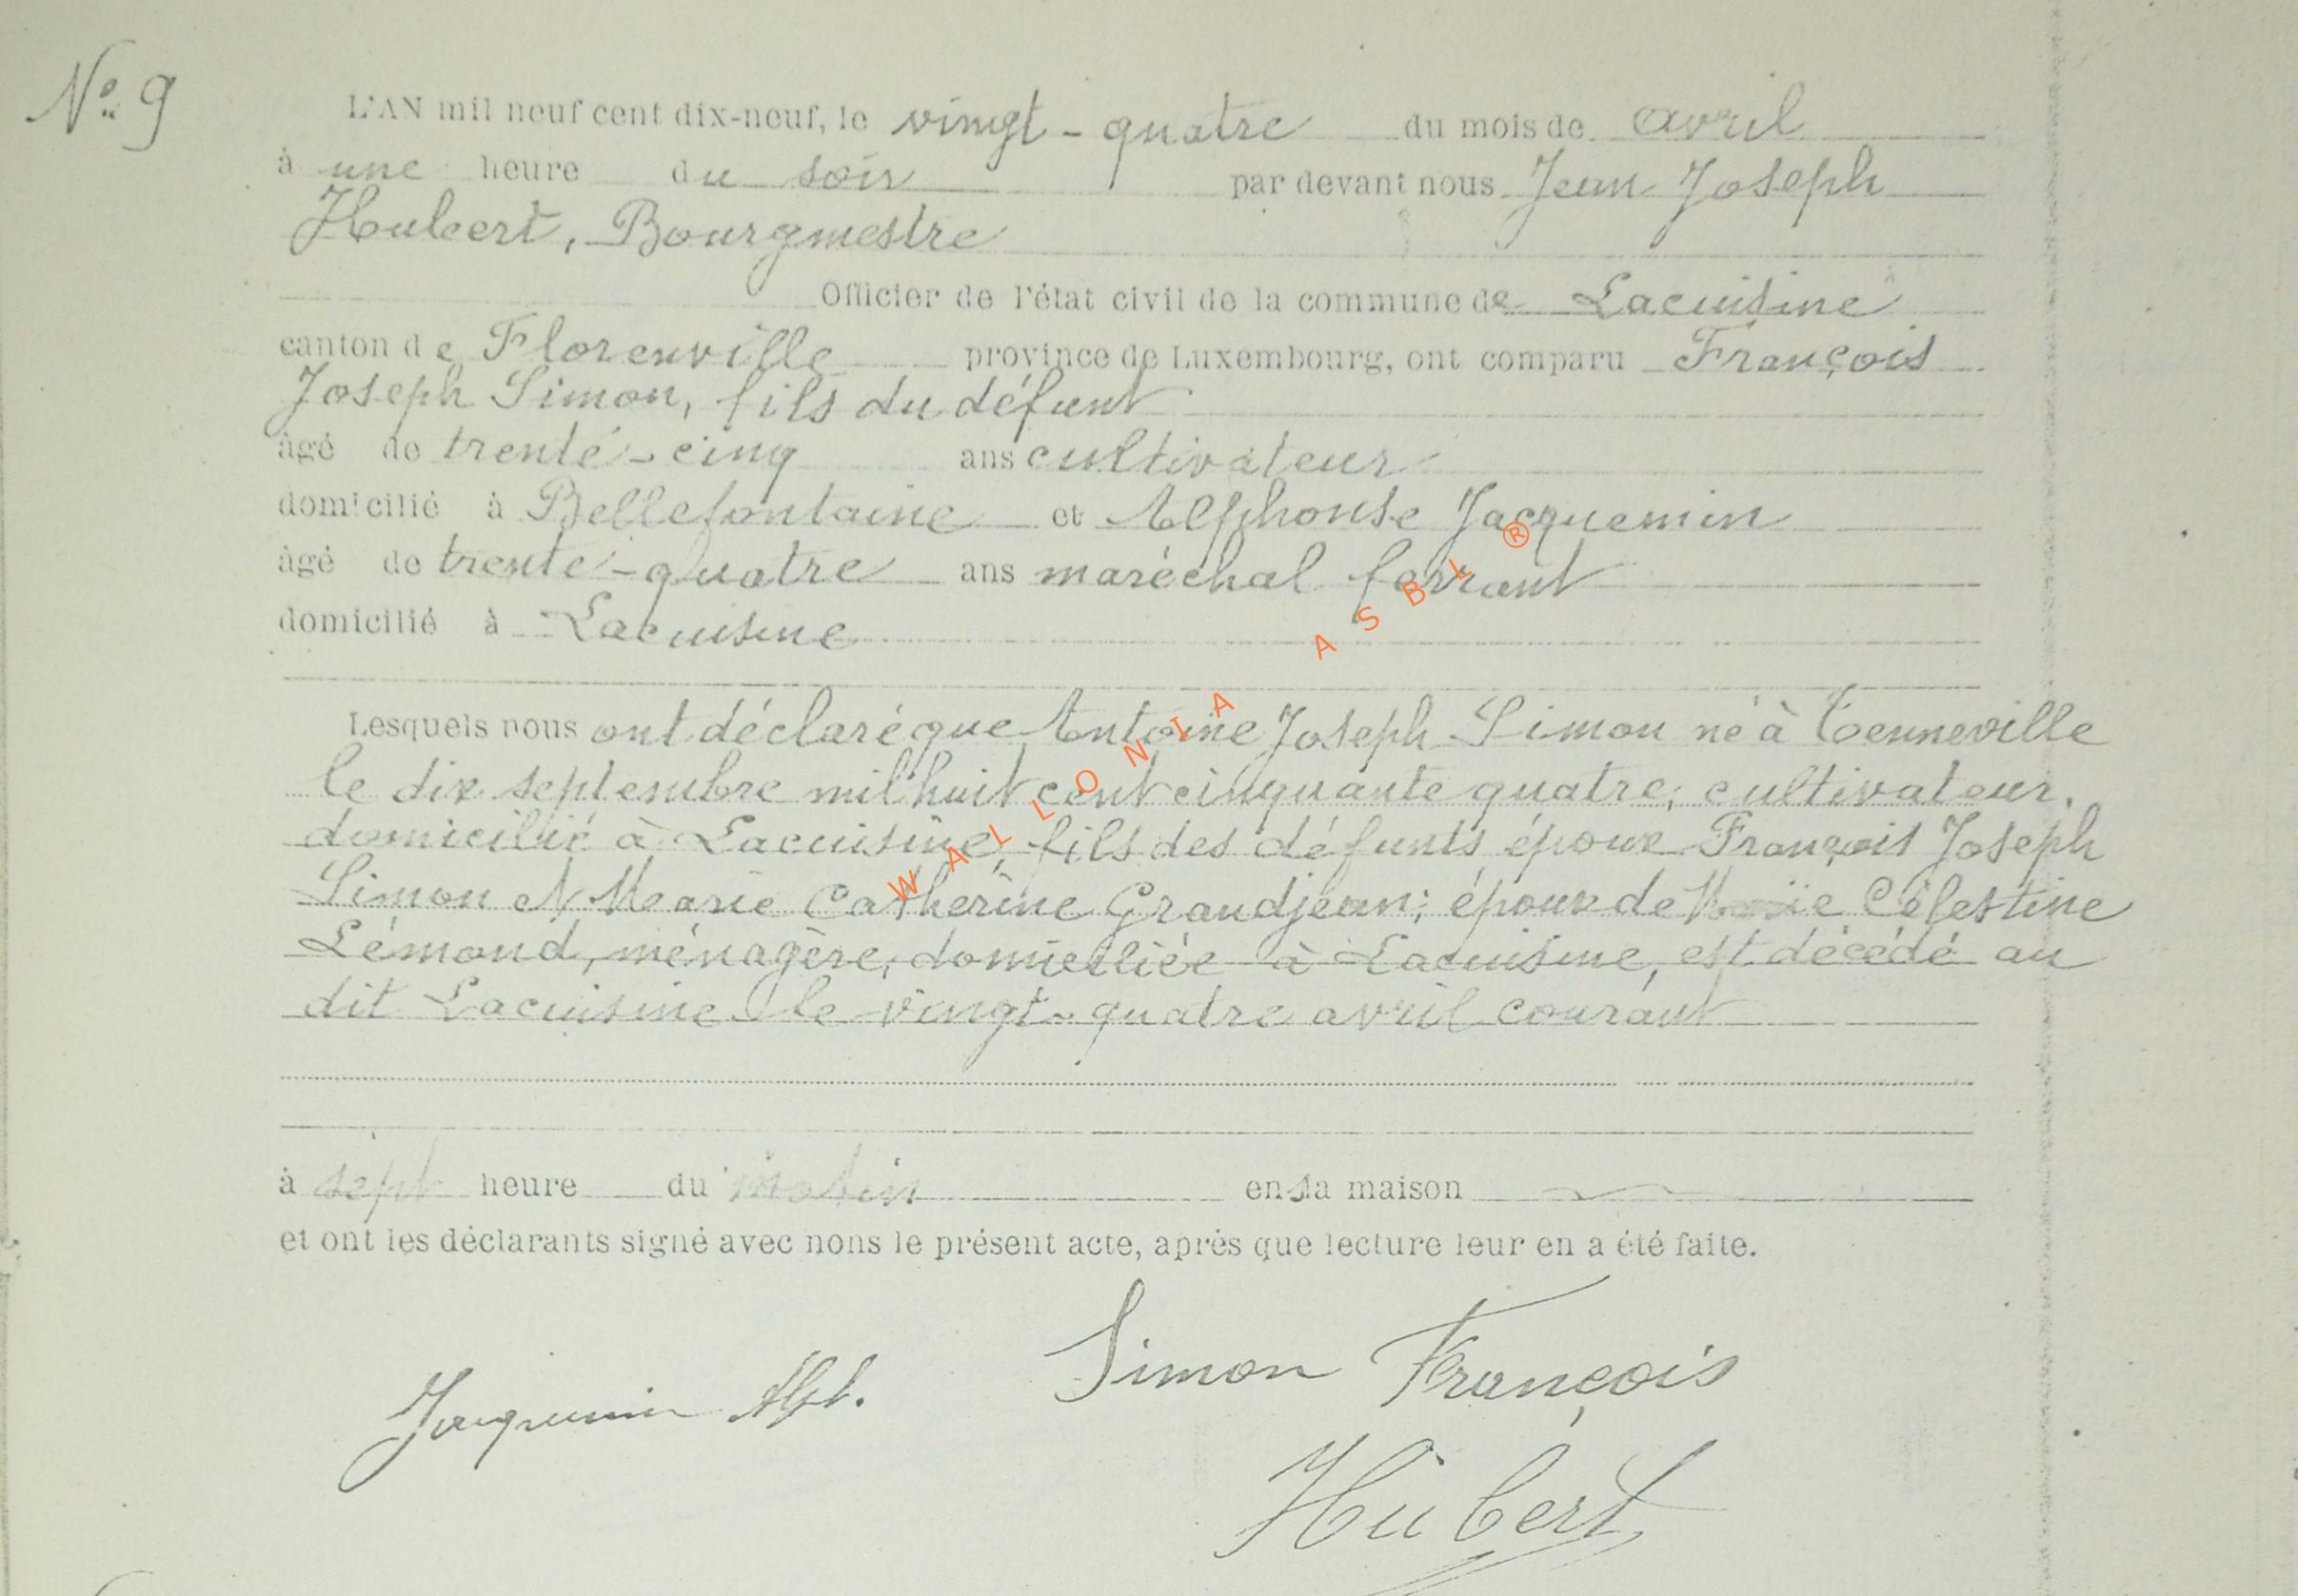 N° 9
L'AN mil neuf cent dix-neuf, le vingt-quatre du mois de avril
à une heure du soir par devant nous Jean Joseph
Hubert, Bourgmestre
Officier de l'état civil de la commune de Lacuisine
canton de Florenville province de Luxembourg, ont comparu François
Joseph Simon, fils du défunt
âgé de trente-cinq ans cultivateur
domicilié à Bellefontaine et Alphonse Jacquemin
âgé de trente-quatre ans maréchal ferrant
domicilié à Lacuisine
Lesquels nous ont déclaré que Antoine Joseph Simon né à Tenneville
le dix septembre mil huit cent cinquante quatre, cultivateur,
domicilié à Lacuisine, fils des défunts époux François Joseph
Simon et Marie Catherine Grandjean; époux de Marie Célestine
Lémond, ménagère, domiciliée à Lacuisine, est décédé au
dit Lacuisine le vingt-quatre avril courant
à sept heure du matin en sa maison
et ont les déclarants signé avec nons le présent acte, après que lecture leur en a été faite.
Simon François
Jacquemin Alph.
Hubert
WALLONIA ASBL ®